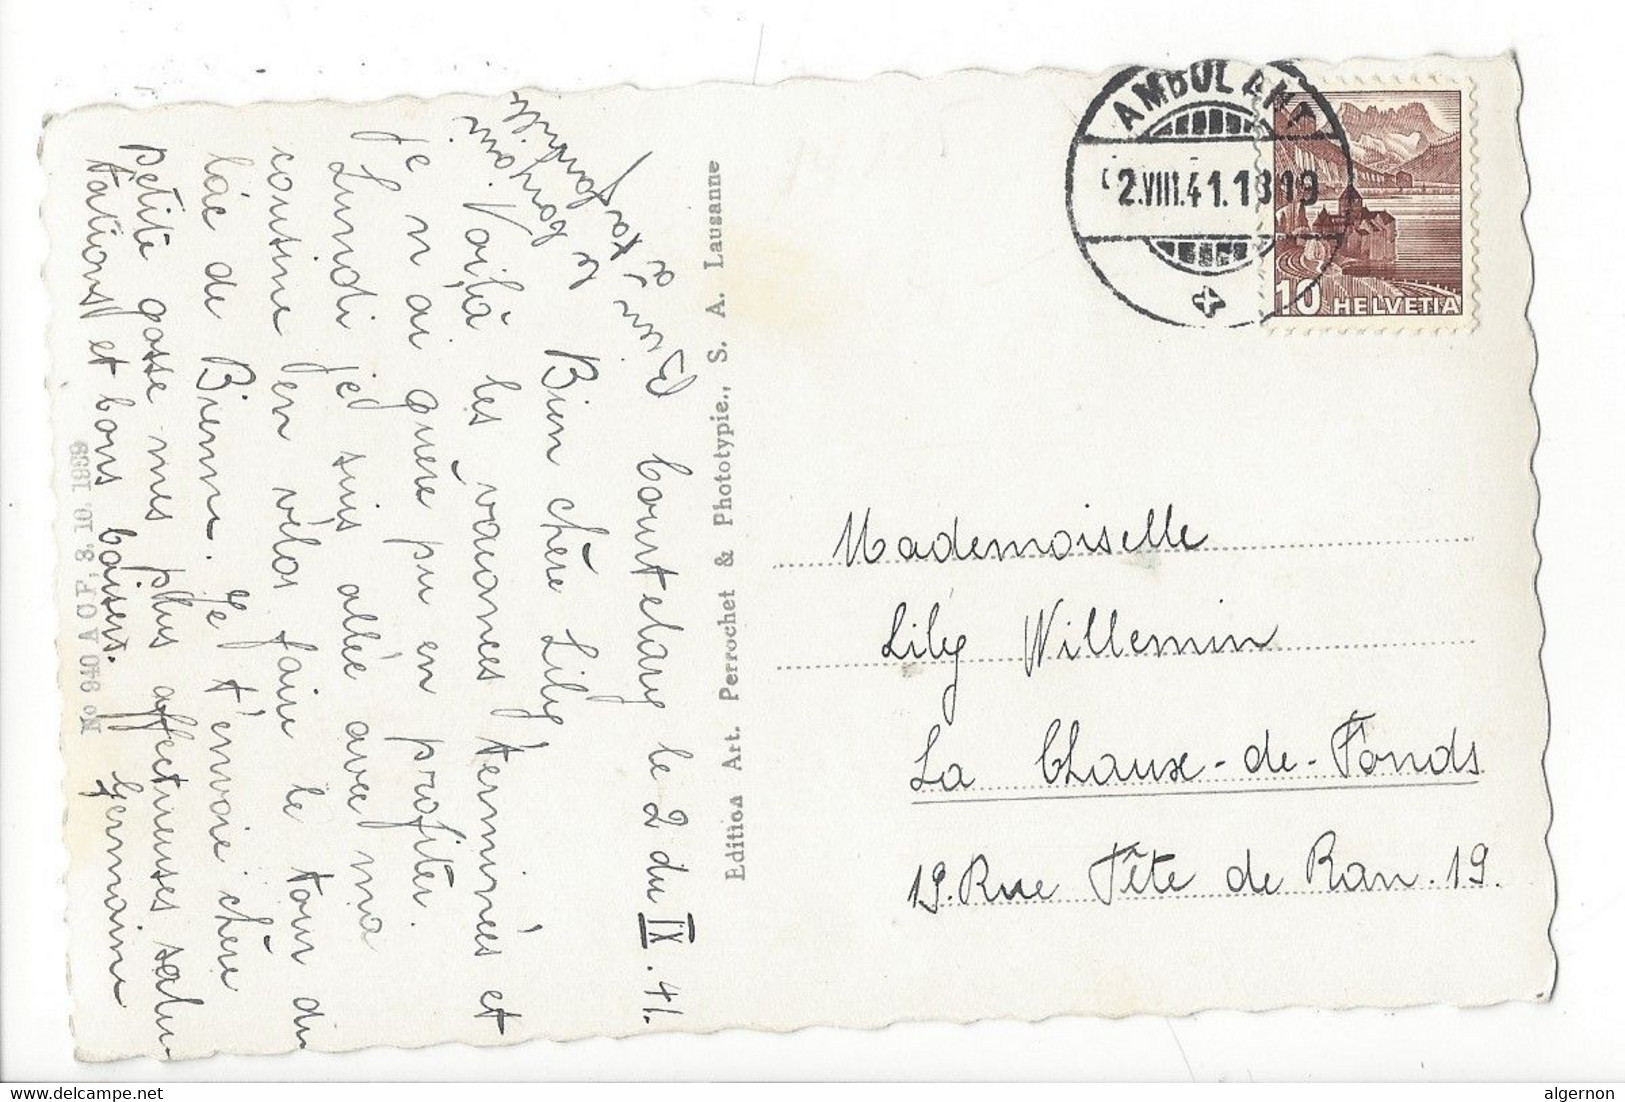 Courtelary le 2 du IX. 41.
Bien chère Lily
Voilà les vacances terminées et
je n'ai guère pu en profiter.
Lundi je suis allée avec ma
cousine en vélos faire le tour du
lac de Bienne. Je t'envoie chère
petite gosse mes plus affectueuses salu-
tations et bons baisers.
Germaine
Bien à
ta famille
le bonjour.
No 940 A C P, 3. 10. 1939
Edition Art. Perrochet & Phototypie., S. A. Lausanne
AMBULANT
2.VIII.41.18
10 HELVETIA
Mademoiselle
Lily Willemin
La Chaux-de-Fonds
19. Rue Tête de Ran. 19.
www.delcampe.net
algernon